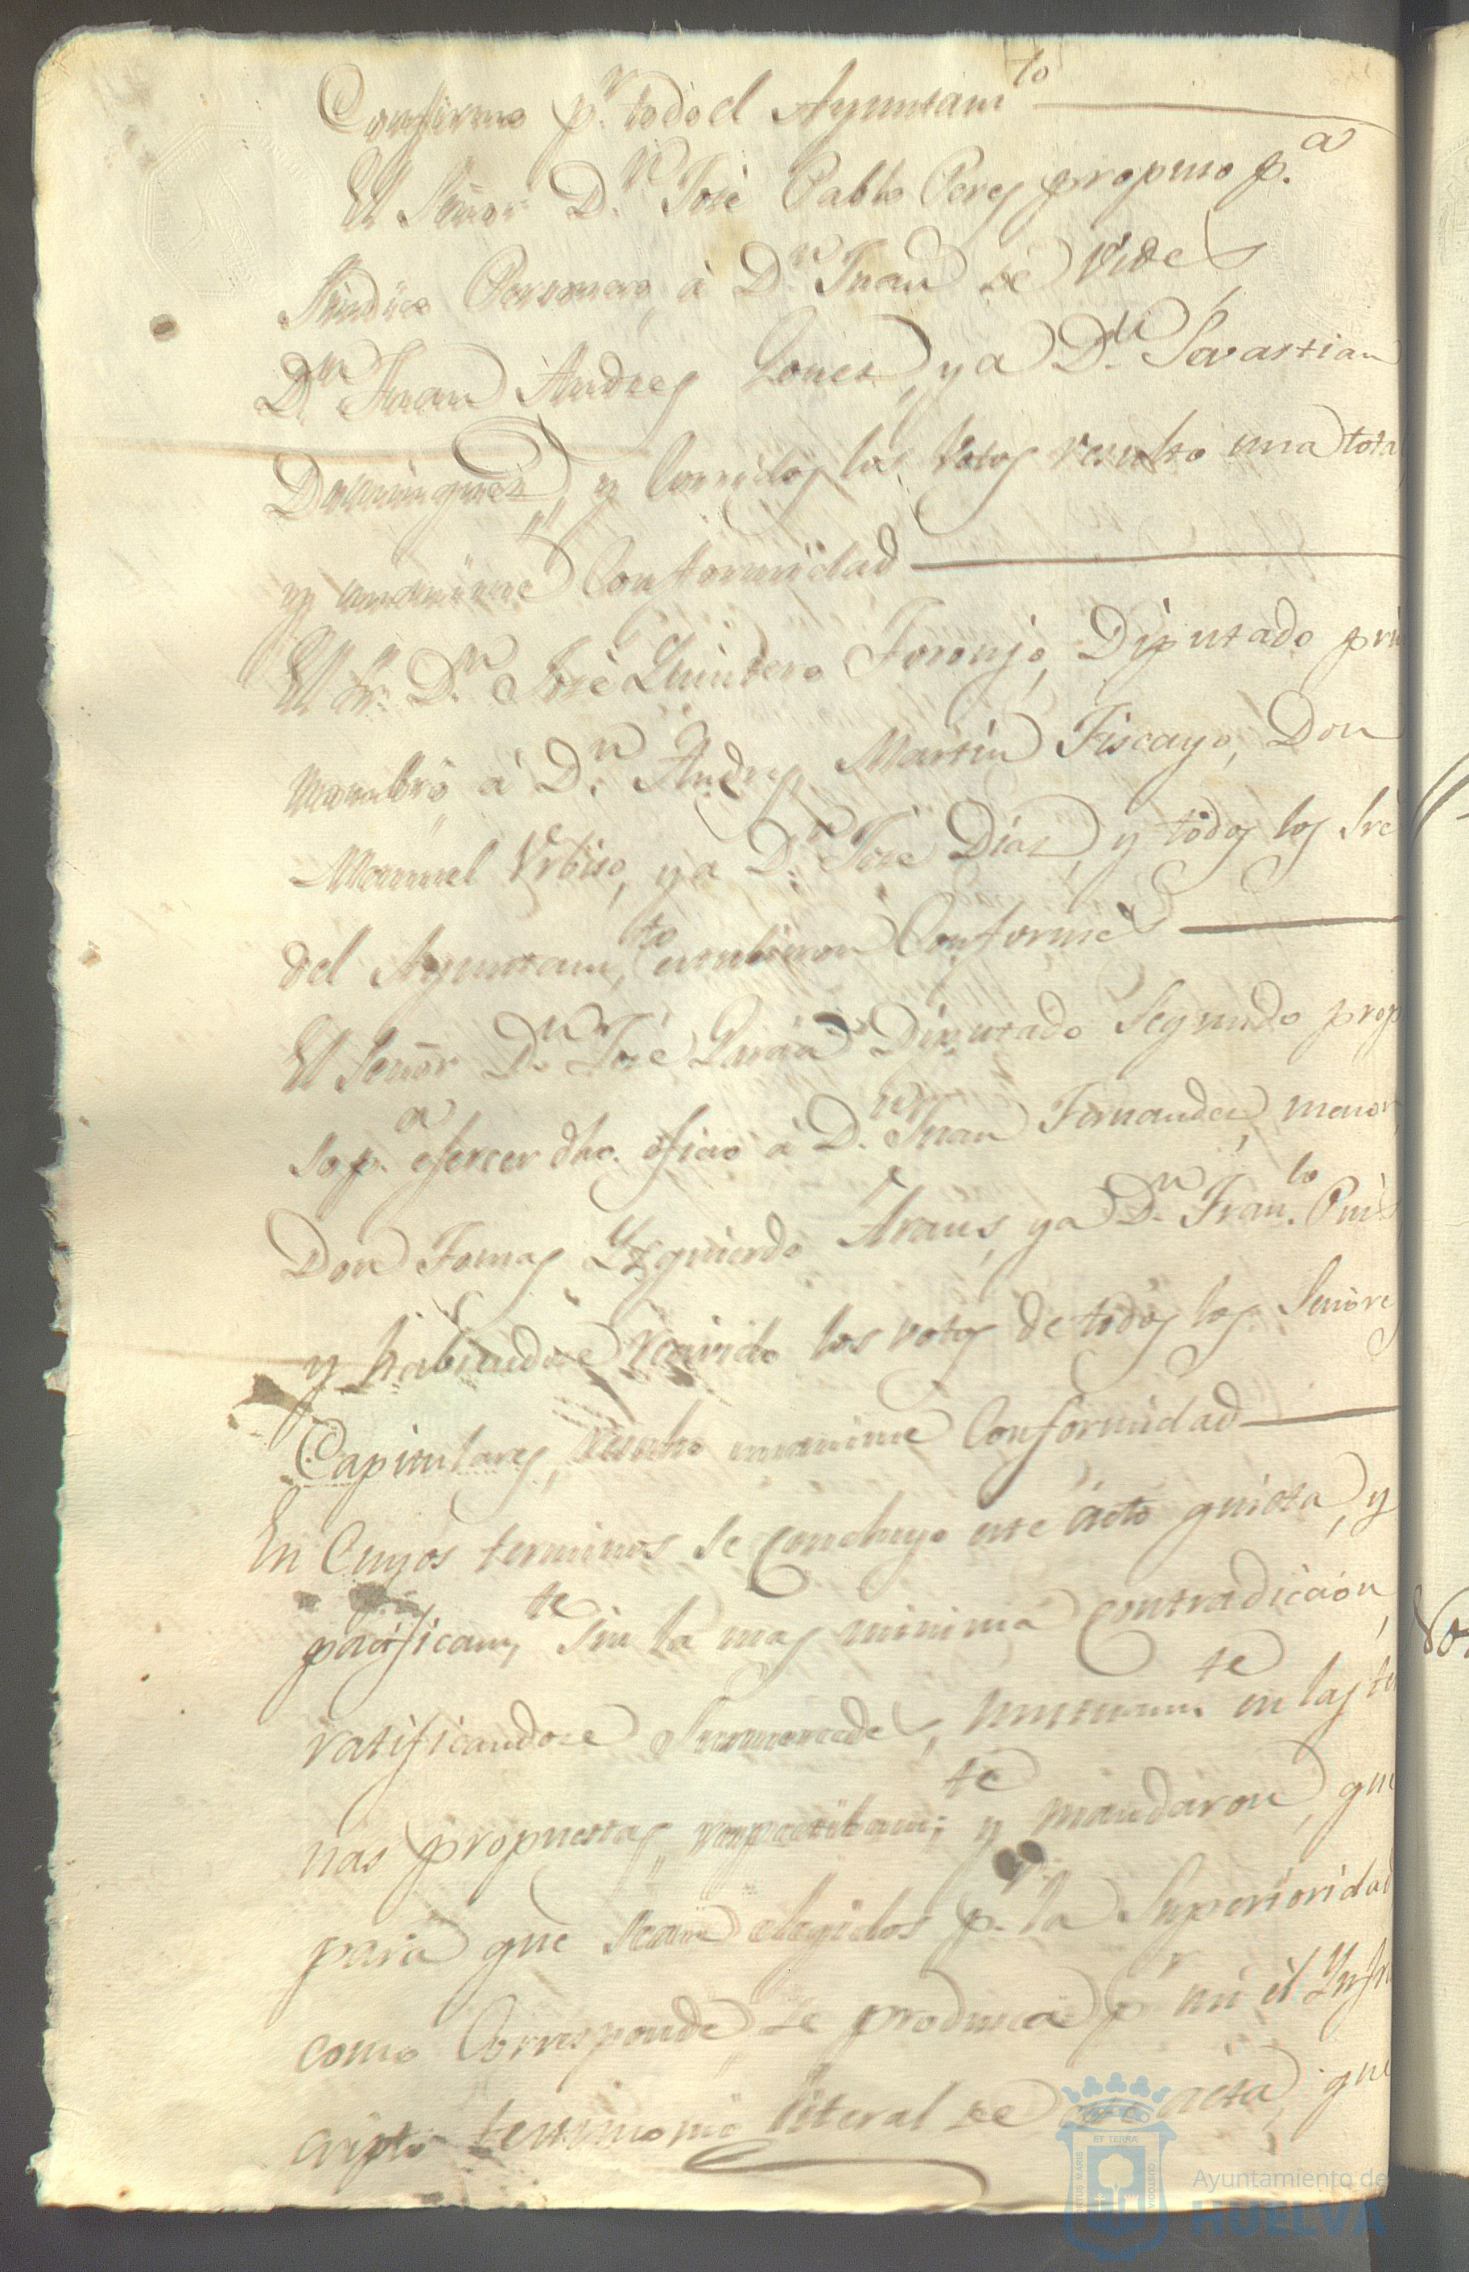 Conforme p.r todo el Ayuntam.to
El Señor D.n José Pablo Peres propuso p.a
Sindico Personero, á D.n Juan de Vides
D.n Juan Andres Lopez, y a D.n Sevastian
Dominguez, y corridos los votos resulto una tota
y unanime Conformidad
El Sr. D.n José Quintero Toronjo, Diputado pri
nombró á D.n Andres Martin Fiscayo, Don
Manuel Urbiso, y a D.n José Dias, y todos los Sre
del Ayuntam.to estubieron Conformes
El Señor D.n José Diputado Segundo prop
so p.a ejercer dho. oficio á D.n Juan Fernandez menor
Don Tomas Yzquierdo Araus, y a D.n Fran.co Ruis
y habiendose recivido los votos de todos los Señore
Capitulares, resulto unanime Conformidad
En Cuyos terminos se concluyo este acto quieta, y
pacificam.te sin la mas minima contradicion,
ratificandose Sus mercedes, mutuam.te en las te
nas propuestas respectibam.te y mandaron, que
para que sean elegidos p.r la Superioridad
como Corresponde se produsca p.r mi el Ynfra
cripto testimonio literal de esta acta, que
Ayuntamiento de
HUELVA